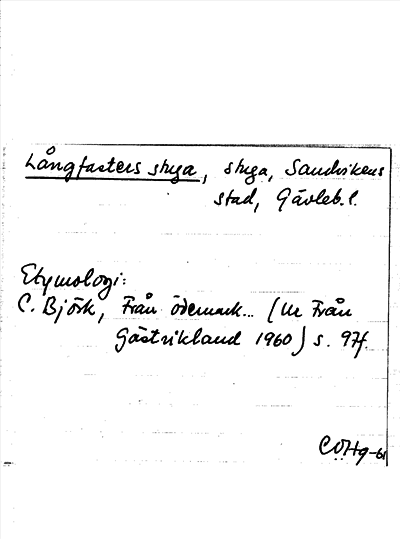 Långfasters stuga, stuga, Sandvikens
stad, Gävleb. l.
Etymologi:
C. Björk, Från ödemark... (ur Från
Gästrikland 1960) s. 97f.
CÖHg-61